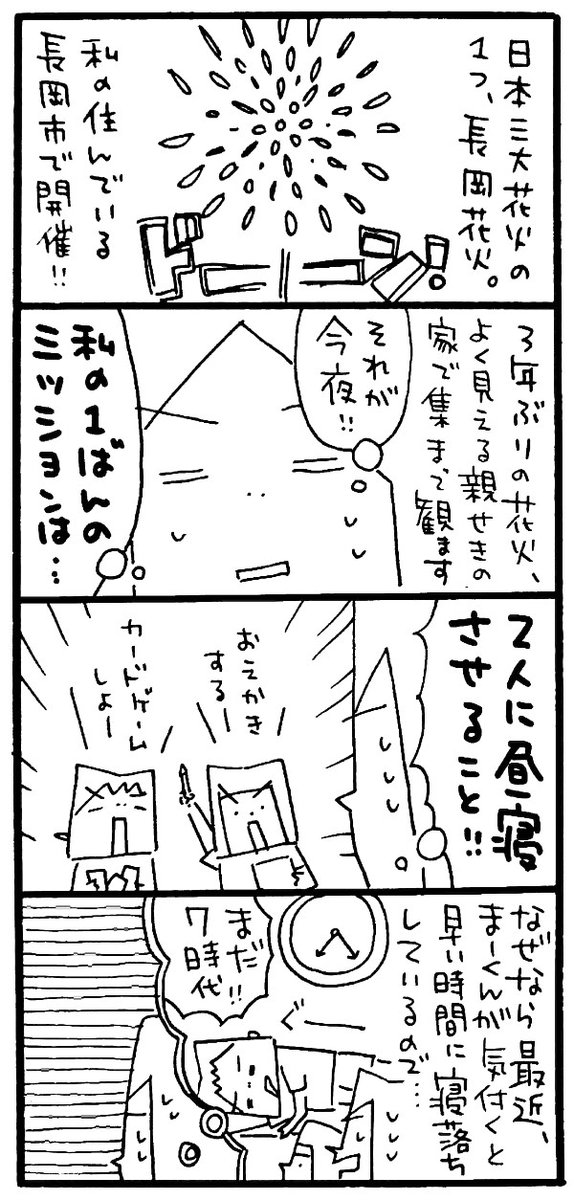 日本三大花火の
1つ、長岡花火。
私の住んでいる
長岡市で開催!!
3年ぶりの花火、
よく見える親せきの
家で集まって観ます
それが
今夜!!
私の1ばんの
ミッションは…
2人に昼寝
させること!!
おえかき
する
カードゲーム
しよー
なぜなら最近、
まーくんが気付くと
早い時間に寝落ち
しているので…
ぐー
まだ!!
7時代